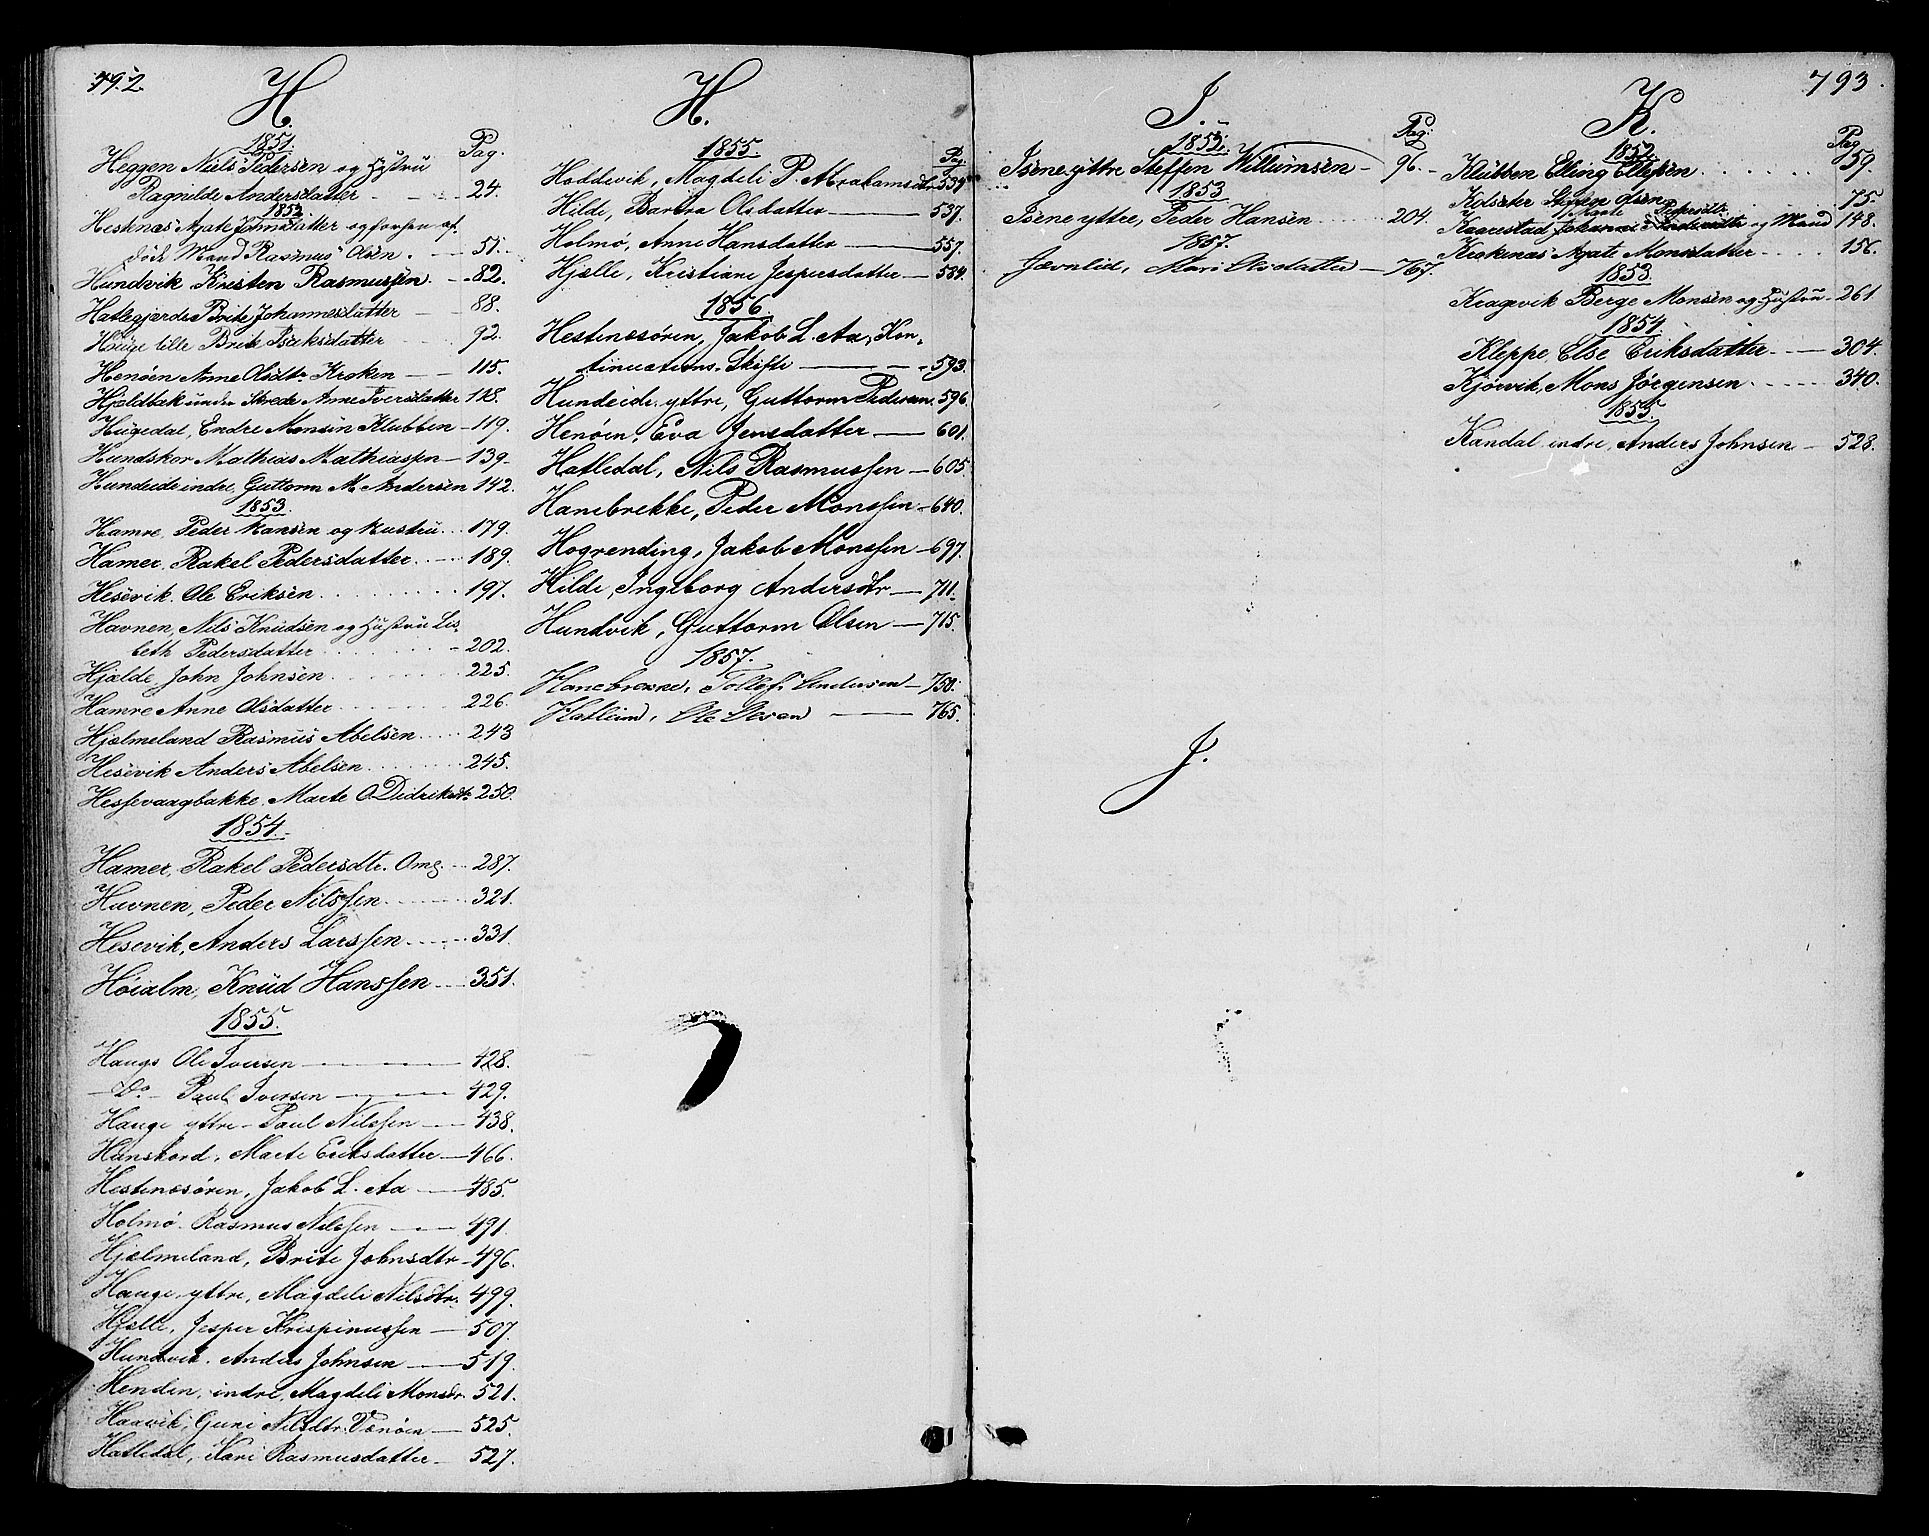 792.
H.
1851.
Pag.
Heggen Niels Pedersen og Hustru
Ragnilde Andersdatter 24.
1852
Hestenæs Agate Jonsdatter og forhen af-
døde Mand Rasmus Olsen. 51.
Hundvik Kristen Rasmussen. 82.
Hatlegjerde Brite Johannesdatter 88.
Hauge lille Brite Isaksdatter 92.
Henøen Anne Olsdtr Kroken 115.
Hjældbak under Strede Anne Iversdatter 118.
Hugedal, Endre Monsen Klubben 119.
Hundskor Mathias Mathiassen 139.
Hundeide indre, Guttorm M. Andersen 142.
1853.
Hamre, Peder Hansen og Hustru 179.
Hamer, Rakel Pedersdatter 189.
Hesevik. Ole Eriksen 197.
Havnen, Nils Knudsen og Hustru Lis-
beth Pedersdatter 202.
Hjelde, John Johnsen 225.
Hamre Anne Olsdatter 226.
Hjelmeland Rasmus Abelsen 243
Hesevik Anders Abelsen 245.
Hessevaagbakke. Marte O. Didriksdtr 250.
1854.
Hamer, Rakel Pedersdtr. Omg. 287.
Havnen, Peder Nilssen 321.
Hesevik, Anders Larssen 331.
Høialm, Knud Hanssen 351.
1855.
Haugs Ole Iversen 428.
Do Paul Iversen 429.
Hauge yttre Paul Nilssen 438.
Hunskord, Marte Eriksdatter 466.
Hestenessøren, Jakob L. Aa 485.
Holmø. Rasmus Nilssen 491.
Hjelmeland, Brite Johnsdtr 496.
Hauge yttre, Magdeli Nilsdtr. 499.
Hjelle, Jesper Krispinussen 507.
Hundvik. Anders Johnsen 519.
Henden, indre, Magdeli Monsdtr. 521.
Haavik, Guni Nilsdtr. Venøen 525.
Hatledal, Kari Rasmusdatter 527.
H.
1855.
Pag.
Hoddevik, Magdeli P. Abrahamsdtr 534.
Hilde, Barbra Olsdatter 537.
Holmø, Anne Hansdatter 557.
Hjelle, Kristiane Jespersdatter 584.
1856.
Hestenessøren, Jakob L. Aa, Kon-
tinuations-Skifte 593.
Hundeide yttre, Guttorm Pedersen 596.
Henøen, Eva Jensdatter 601.
Hatledal, Nils Rasmussen 605.
Hanebrekke, Peder Monssen 640.
Hogrending, Jakob Monssen 697.
Hilde, Ingeborg Andersdtr 711.
Hundvik, Guttorm Olsen 715.
1857.
Hanebrekke, Tollef Andersen 750.
Hatleim, Ole Olsen 765.
793.
I.
1852.
Pag.
Isene yttre Steffen Willumsen 96.
1853
Isene yttre, Peder Hansen 204.
1857.
Jævnlid, Mari Olsdatter 767.
J.
K.
1852
Pag
Klubben Elling Ellefsen 59.
Kolseter Sigvge Olsen 75.
Marte Pedersdtr.
Kaarestad Johanne og Mand 148.
Krokenæs Agate Monsdatter 156.
1853
Kragevik Berge Monsen og Hustru 261
1854.
Kleppe, Else Eriksdatter 304.
Kjørvik, Mons Jørgensen 340.
1855.
Kandal indre, Anders Johnsen 528.